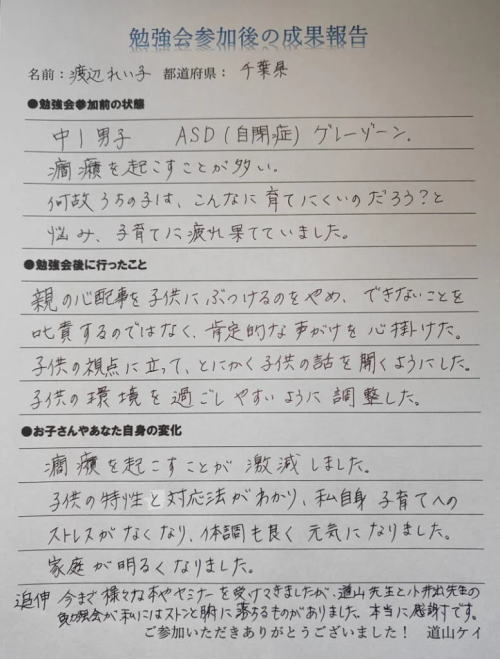 勉強会参加後の成果報告
名前：渡辺れい子 都道府県： 千葉県
●勉強会参加前の状態
中1男子 ASD(自閉症)グレーゾーン.
癇癪を起こすことが多い.
何故うちの子は、こんなに育てにくいのだろう?と
悩み、子育てに疲れ果てていました。
●勉強会後に行ったこと
親の心配事を子供にぶつけるのをやめ、できないことを
叱責するのではなく、肯定的な声がけを心掛けた。
子供の視点に立って、とにかく子供の話を聞くようにした。
子供の環境を過ごしやすいように調整した。
●お子さんやあなた自身の変化
癇癪を起こすことが激減しました。
子供の特性と対応法がわかり、私自身子育てへの
ストレスがなくなり、体調も良く元気になりました。
家庭が明るくなりました。
追伸 今まで様々な本やセミナーを受けてきましたが、道山先生と小井出先生の
勉強会が私にはストンと腑に落ちるものがありました。本当に感謝です。
ご参加いただきありがとうございました！ 道山ケイ